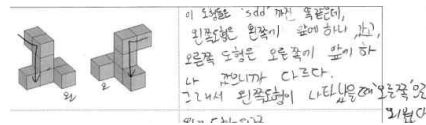 이 도형들은 'sdd' 까진 똑같은데,
왼쪽도형은 왼쪽기 앞에 하나 있고,
오른쪽 도형은 오른쪽기 앞에 하
나 있으니까 다르다.
그래서 왼쪽도형이 나타났을때 '오른쪽'으로
왼
오